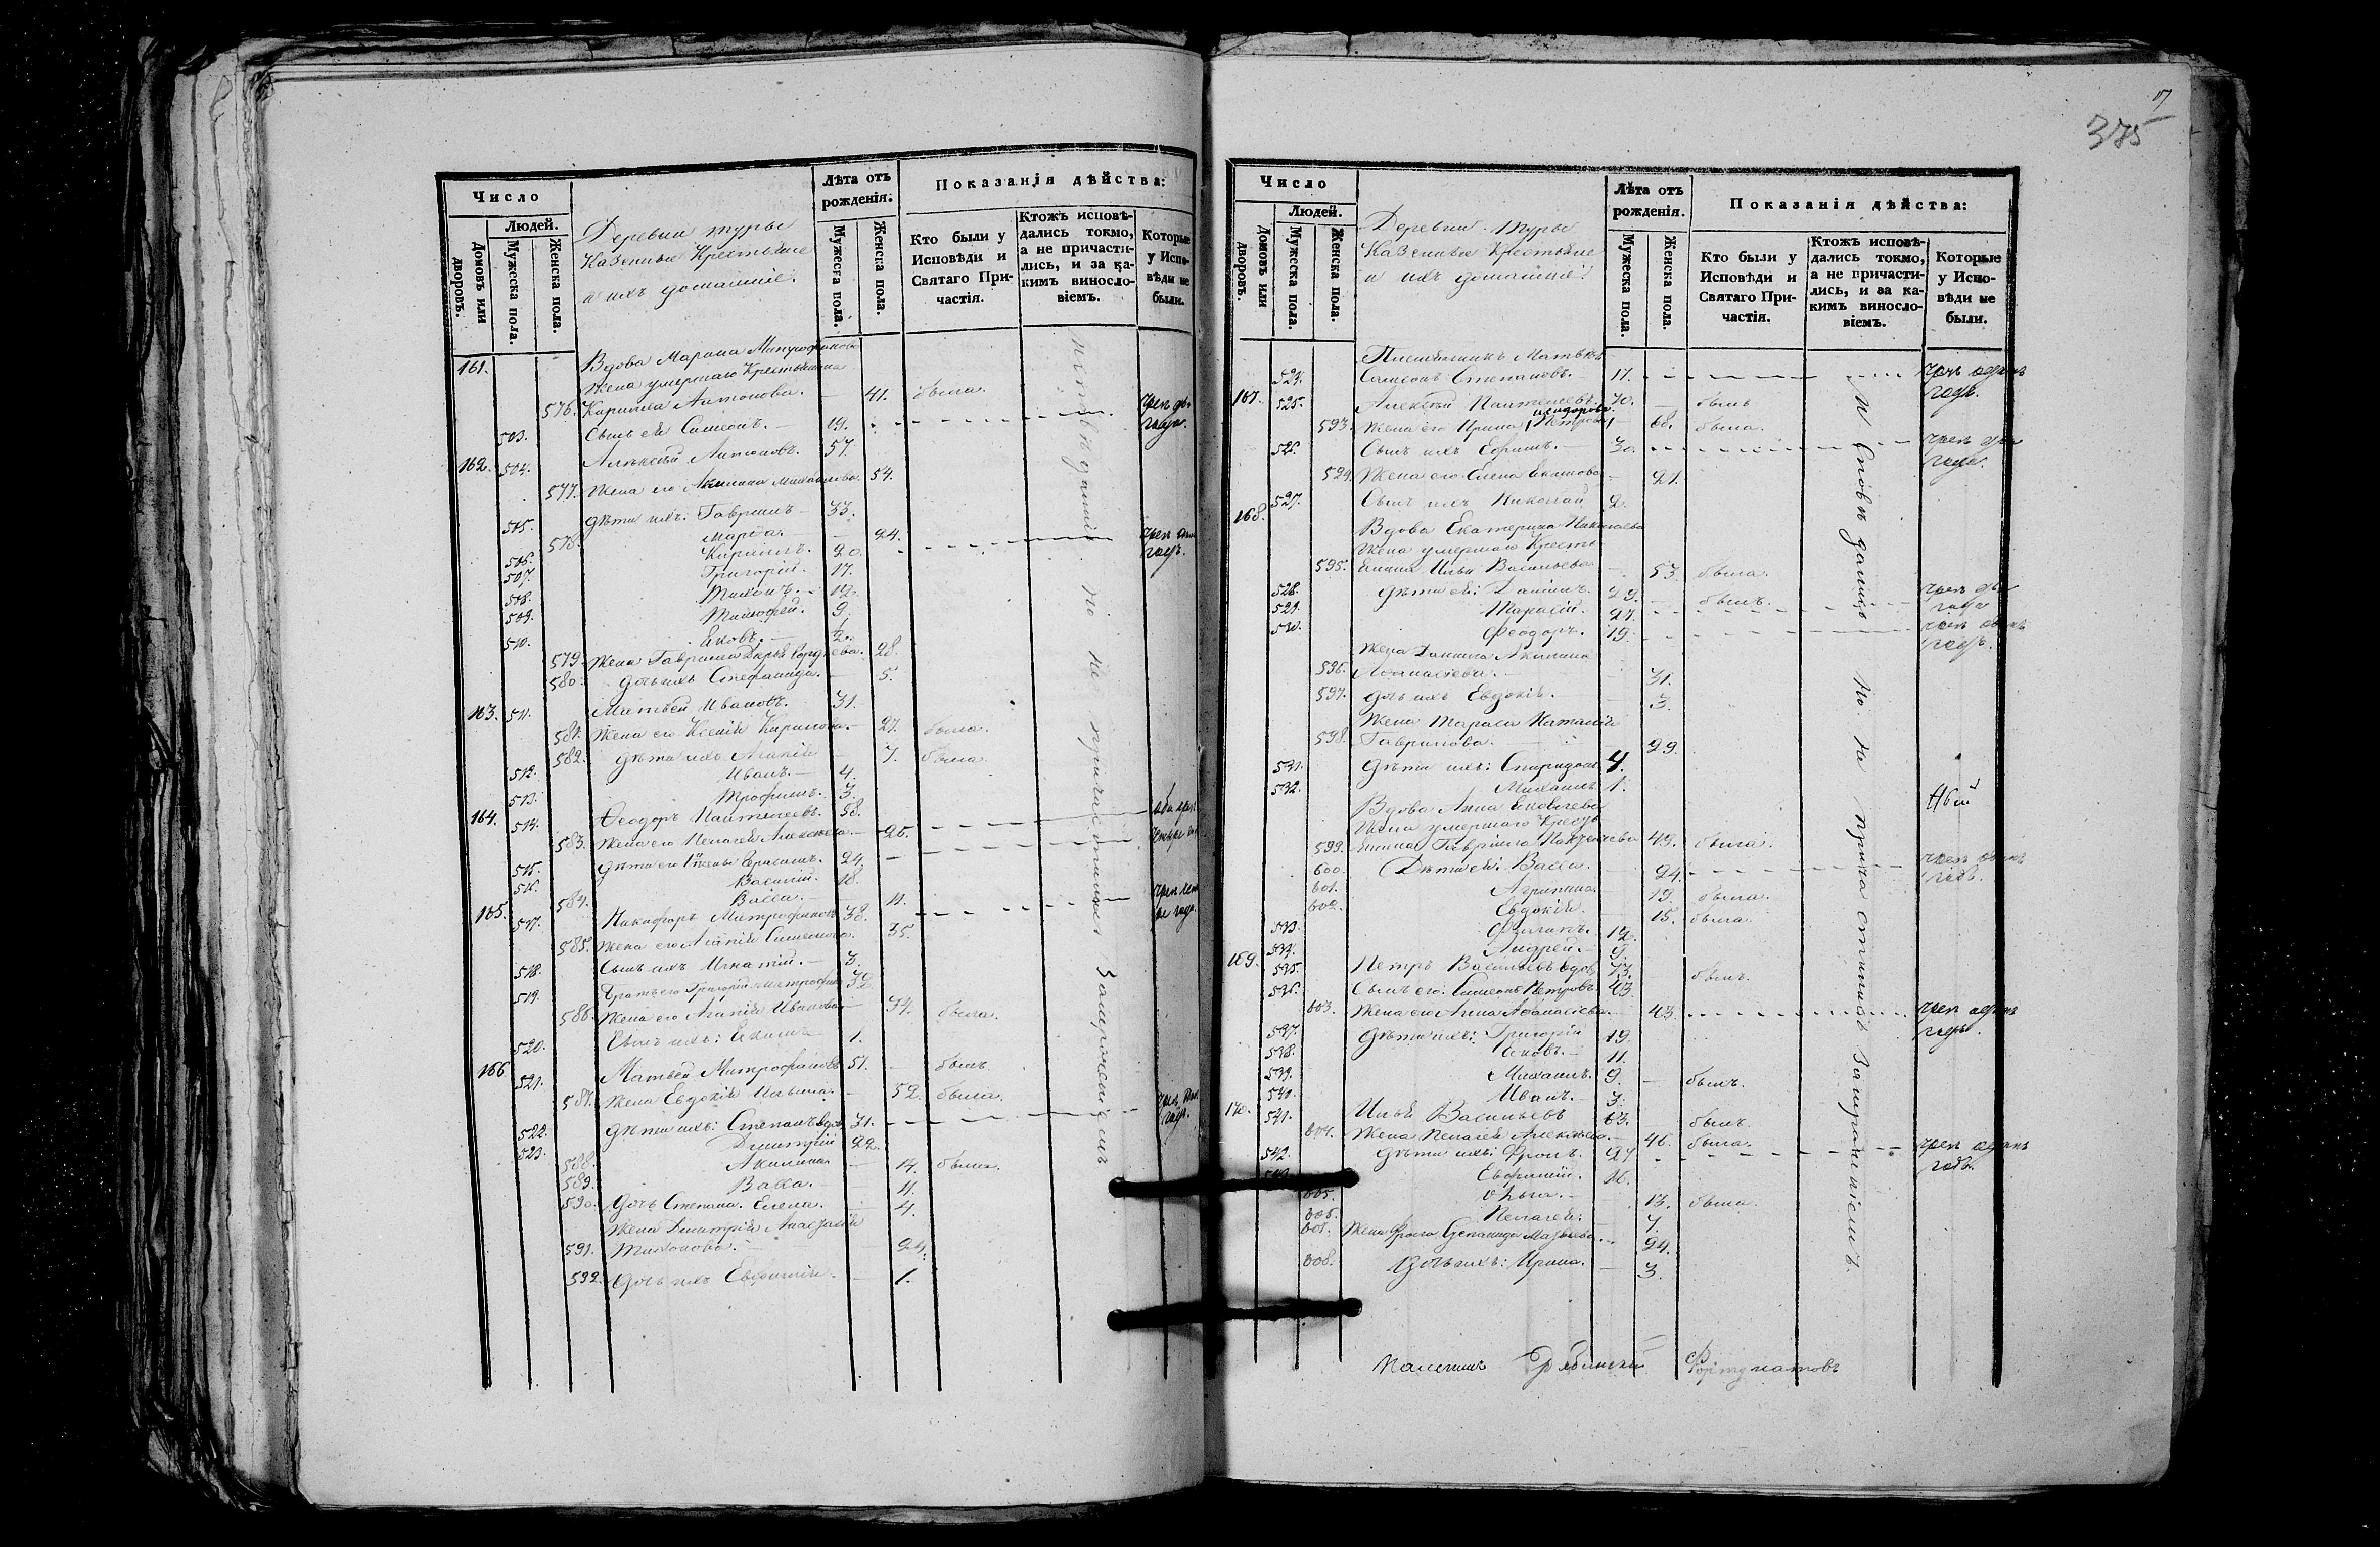 Число
Людей.
Домовъ или дворовъ.
Мужеска пола.
Женска пола.
Деревни Туры
Казенные Крестьяне
и ихъ домашніе.
Лѣта отъ рожденія.
Мужеска пола.
Женска пола.
Показанія дѣйства:
Кто были у Исповѣди и Святаго Причастія.
Ктожъ исповѣдались токмо, а не причастились, и за какимъ винословіемъ.
Которые у Исповѣди не были.
161. Вдова Марина Митрофанова
жена умершаго Крестьянина
576. Кирилла Антонова. 41. была.
503. Сынъ ея Симеонъ. 19.
162. 504. Алексѣй Антоновъ. 57.
577. Жена его Акилина Михайлова 54.
505. Дѣти ихъ: Гавріилъ 33.
578. Марѳа. 24.
506. Кириллъ. 20.
507. Григорій. 17.
508. Тихонъ. 12.
509. Тимофей. 9
510. Яковъ.
579. Жена Гавріила Дарья 28.
580. Дочь ихъ Стефанида. 5.
163. 511. Матвей Ивановъ. 31.
581. Жена его Ксенія Кирилова. 27. была.
582. Дѣти ихъ Агапія 7. была.
512. Иванъ. 4.
513. Трофимъ. 3.
164. 514. Ѳеодоръ Пантелеевъ. 58.
583. Жена его Пелагея Алексѣева
515. Дѣти его 1й жены Герасимъ. 24.
516. Василій. 18.
584. Васса. 11.
165. 517. Никифоръ Митрофановъ 38.
585. Жена его Агапія Симеонова. 35.
518. Сынъ ихъ Игнатій. 3.
519. Братъ его Григорій Митрофановъ 32
586. Жена его Агапія Иванова 34. была.
520. Сынъ ихъ: Екимъ 1.
166 521. Матвей Митрофановъ 51. былъ.
587. Жена Евдокія Ильина. 52. была.
522. Дѣти ихъ: Степанъ вдовъ 31.
523. Дмитрій 22.
588. Акилина 14. была.
589. Васса. 11.
590. Дочь Степана. Елена. 4.
Жена Дмитрія Анастасія
591. Тихонова. 24.
592. Дочь ихъ Евфимія. 1.
но не причастились за нерадѣніемъ
375
Число
Людей.
Домовъ или дворовъ.
Мужеска пола.
Женска пола.
Деревни Туры
Казенные Крестьяне
и ихъ домашніе.
Лѣта отъ рожденія.
Мужеска пола.
Женска пола.
Показанія дѣйства:
Кто были у Исповѣди и Святаго Причастія.
Ктожъ исповѣдались токмо, а не причастились, и за какимъ винословіемъ.
Которые у Исповѣди не были.
Племянникъ Матвея
524. Симеонъ Степановъ. 17. чрез одинъ годъ.
167. 525. Алексѣй Пантелеевъ. 70. былъ
593. Жена его Ирина Петрова 68. была.
526. Сынъ ихъ Ефимъ. 30. чрез два года.
594. Жена его Елена Екимова 27.
527. Сынъ ихъ Николай 2.
168. Вдова Екатерина Николаева
жена умершаго Кресть
595. янина Ильи Васильева 53. была.
528. Дѣти ея: Даниилъ. 29. былъ. чрез два года
529. Тарасій. 27.
530. Ѳеодоръ. 19. чрез одинъ годъ.
Жена Даниила Акилина
596. Аѳанасіева. 31.
597. Дочь ихъ Евдокія. 3.
Жена Тараса Наталія
598. Гаврилова. 29.
531. Дѣти ихъ: Спиридонъ. 4.
532. Михаилъ 1.
Вдова Анна Яковлева
жена умершаго Кресть
599. янина Гавріила 49. была.
600. Дѣти ея: Васса. 24. чрез одинъ годъ.
601. Агрипина 19. была.
602. Евдокія. 15. была.
533. Филатъ. 12.
534. Андрей. 9.
169. 535. Петръ Васильевъ вдовъ 73. былъ.
536. Сынъ его: Симеонъ Петровъ. 43.
603. Жена его Анна Аѳанасіева. 43. чрез одинъ годъ.
537. Дѣти ихъ: Григорій 19.
538. Яковъ. 11.
539. Михаилъ. 9. былъ.
540. Иванъ. 3.
170. 541. Илья Васильевъ 63. былъ.
604. Жена Пелагея Алексѣева. 46. была.
542. Дѣти ихъ: Фролъ. 27 чрез одинъ годъ.
543. Евфимій. 16.
605. Ольга. 13. была.
606. Пелагея. 7.
607. Жена Фрола Степанида 24.
608. Дочь ихъ: Ирина. 3.
Исповѣдались но не причастились за нерадѣніемъ.